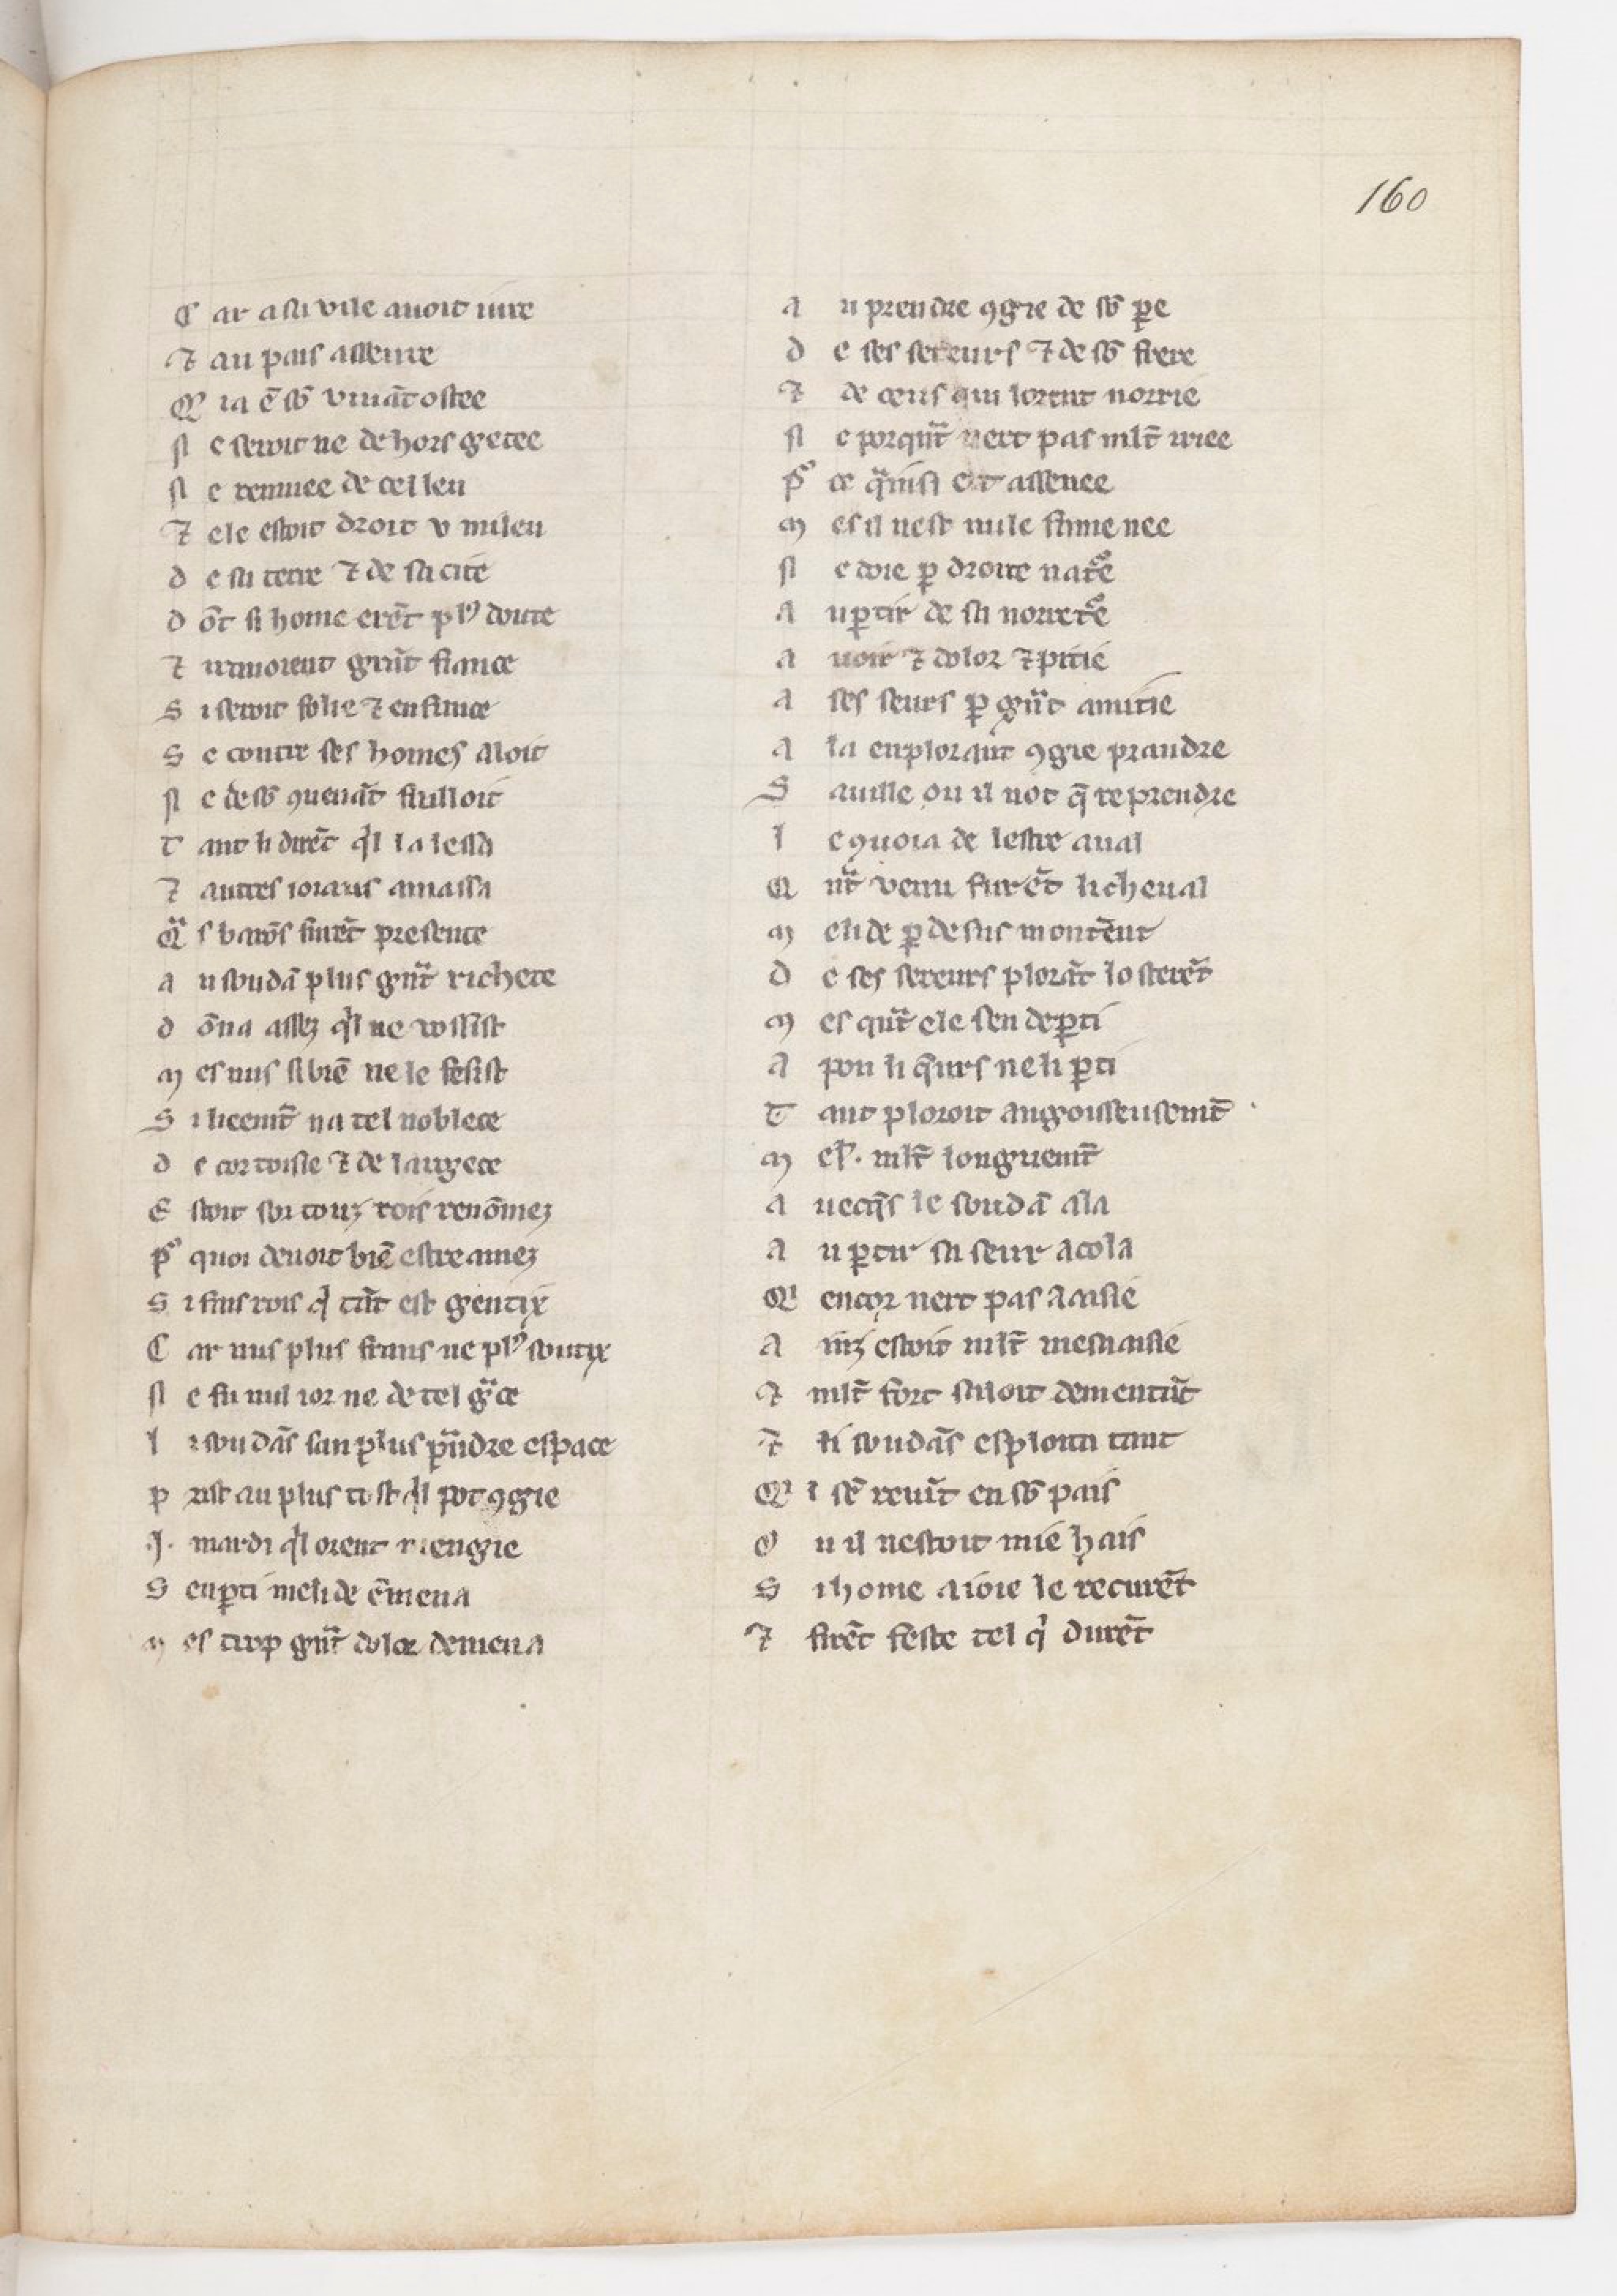 160
C ar a sa vile auoit iure
⁊ au pais asseure
Q ia ē sō viuāt ostee
N e seroit ne de hors getee
N e remuee de cel leu
⁊ ele estoit droit v mileu
D e sa terre ⁊ de sa cite
D ōt si home erēt plꝰ doute
⁊ auoient grāt fiance
S i seroit folie ⁊ enfance
S e contre ses homes aloit
N e de sō ꝯuenāt failloit
T ant li dirēt qͥl la lessa
⁊ autres ioiaus amassa
Qᵃ s barōs furēt presente
A u soudā plus gᵃnt richete
D ōna assez qͥl ne vossist
M es nus si biē ne le fesist
S i licemt̄ na tel noblece
D e cortoisie ⁊ de largece
E stoit sor touz rois renōmez
P ͦ quoi deuoit biē estre amez
S i fais rois qͥ tāt est gentix
C ar nus plus frans ne plꝰ soutix
N e fu nul ior ne de tel gᵃce
L i soudās san plus pᵃndre espace
P rist au plus tost qͥl pot ꝯgie
.I. mardi qͥl orent mengie
S en ꝑti melide ēmena
M es trop gᵃnt dolor demena
A u prendre ꝯgie de sō ꝑe
D e ses sereurs ⁊ de sō frere
⁊ de ceus qui lorent norrie
N e porquāt nert pas ml̄t iriee
P ͦ ce qᵃinsi ert assenee
M es il nest nule fame nee
N e doie ꝑ droite natᵉe
A u ꝑtir de sa norretᵉe
A uoir ⁊ dolor ⁊ pitie
A ses seurs ꝑ gᵃnt amitie
A la enplorant ꝯgie prandre
S a uille ou il not q̄ reprendre
L e ꝯuoia de lestre aual
Q n̄t venu furēt li cheual
M elide ꝑ desus montēnt
D e ses sereurs plorāt lo sterēt
M es quāt ele sen deꝑti
A pou li q̄urs ne li ꝑti
T ant ploroit angoisseusemt̄
M el'. ml̄t longuemt̄
A uecqͥs le soudā ala
A u ꝑtir sa seur acola
Q encor nert pas aaisie
A inz estoit ml̄t mesaaisie
⁊ ml̄t fort saloit dementāt
⁊ li soudās esploita tant
Q i sē reuīt en sō pais
O u il nestoit mie hais
S i home a ioie le recurēt
⁊ firēt feste tel qͥ durēt